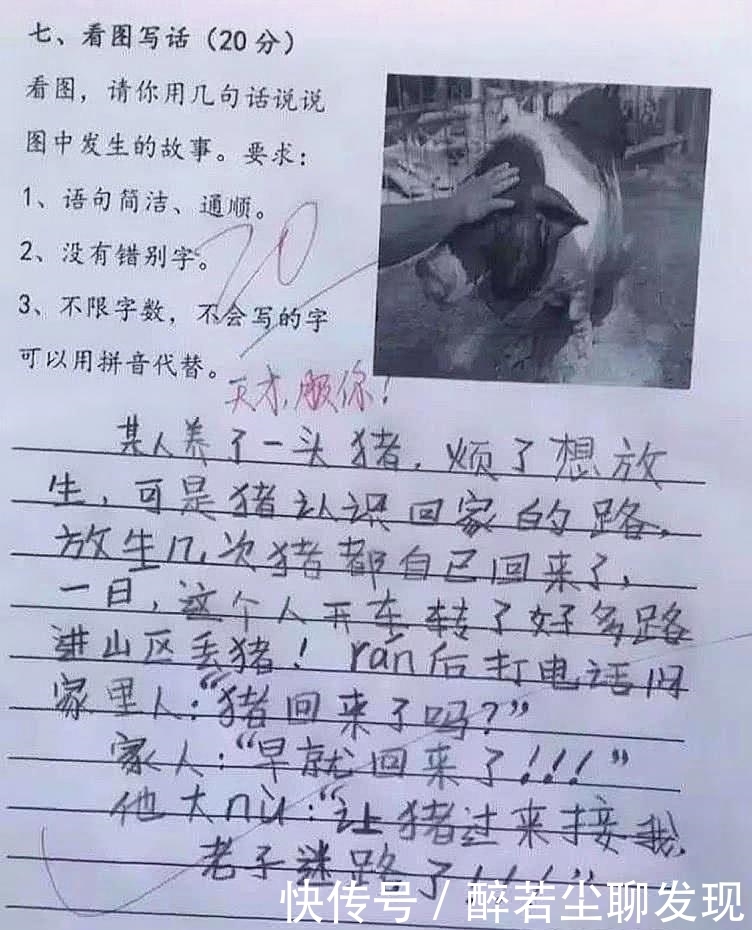 七、看图写话（20分）
看图，请你用几句话说说
图中发生的故事。要求：
1、语句简洁、通顺。
2、没有错别字。
3、不限字数，不会写的字
可以用拼音代替。
20
天才，服你！
某人养了一头猪，烦了想放
生，可是猪认识回家的路，
放生几次猪都自己回来了，
一日，这个人开车转了好多路
进山区丢猪！rán后打电话问
家里人：“猪回来了吗？”
家人：“早就回来了！！！”
他大nù：“让猪过来接我，
老子迷路了！！！”
快传号/醉若尘聊发现